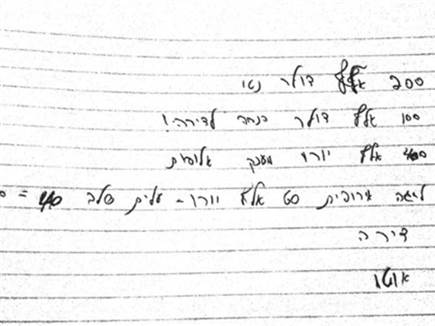 200 אלף דולר נטו
100 אלף דולר הנחה לדירה!
400 אלף יורו מענק אליפות
ליגה אירופית 50 אלף יורו - עלית שלב 40 =
דירה
אוטו